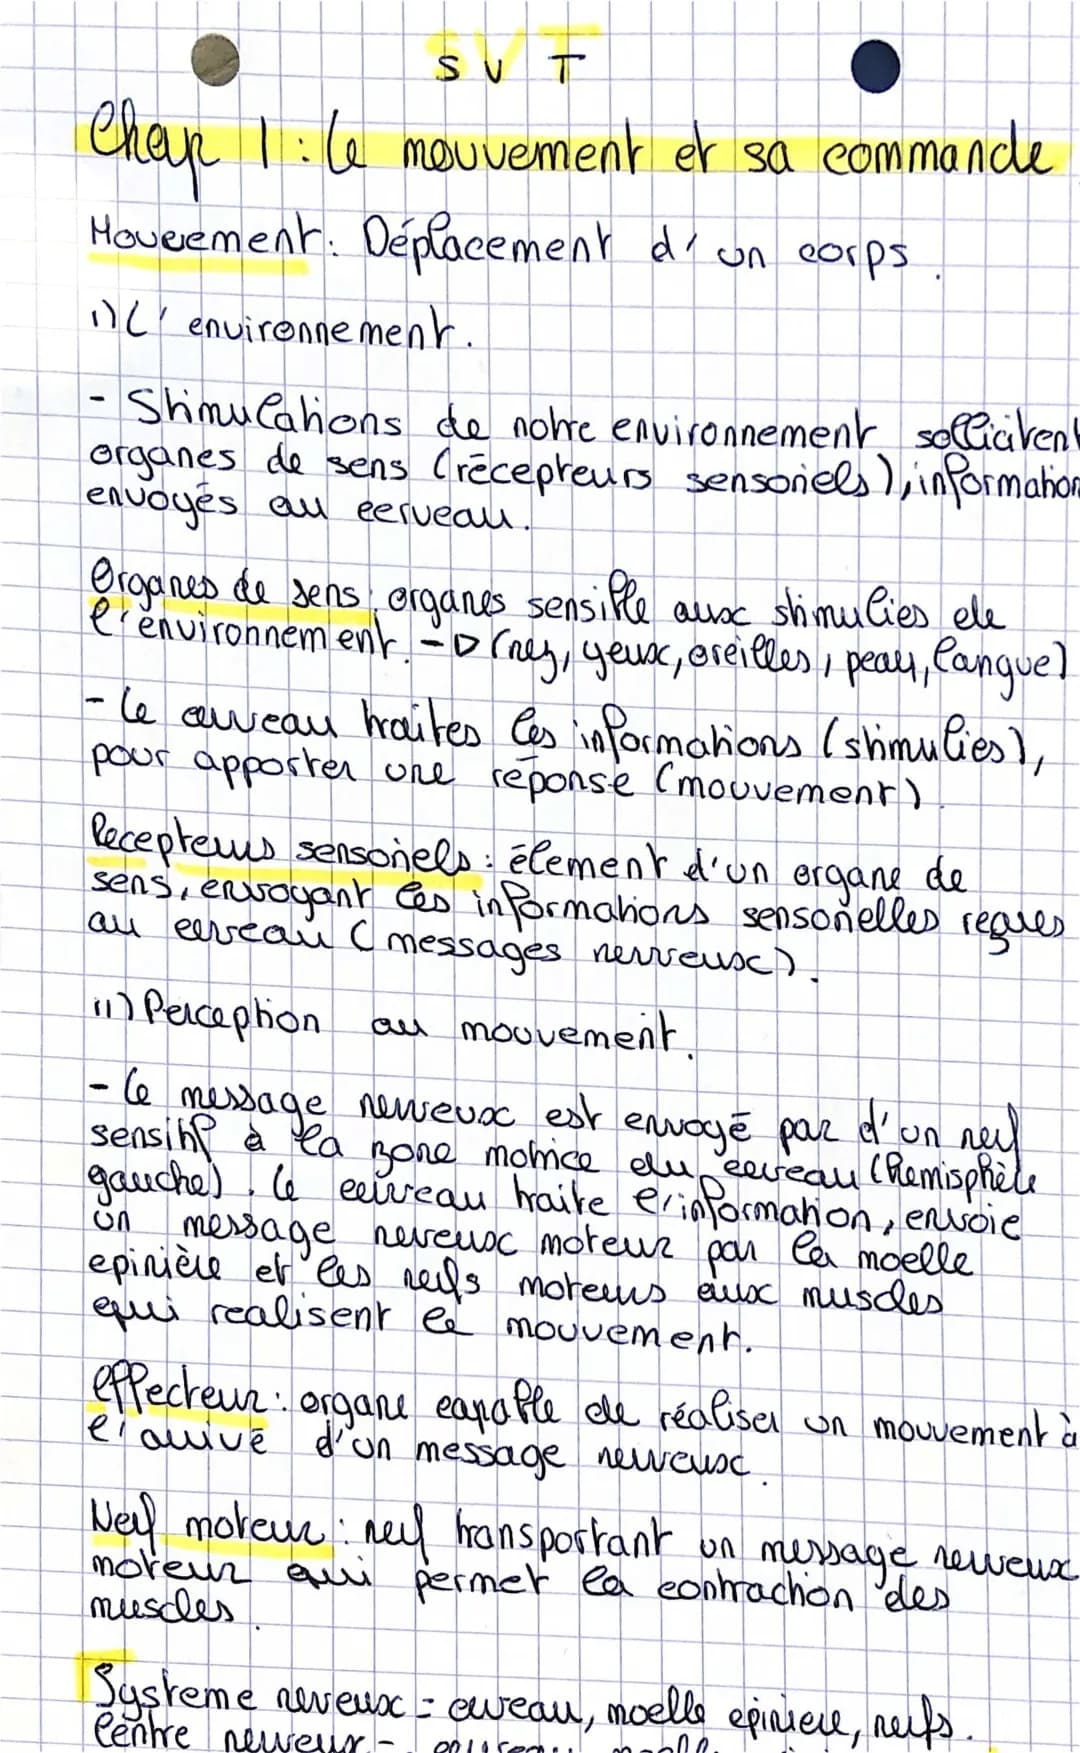 SVT
Chap 1 : Le mouvement et sa commande
Mouvement : Déplacement d'un corps.
1) L'environnement.
- Stimulations de notre environnement sollicitent
organes de sens (récepteurs sensoriels), information
envoyés au cerveau.
Organes de sens : organes sensible aux stimulies de
l'environnement. -> (nez, yeux, oreilles, peau, langue)
- Le cerveau traites les informations (stimulies),
pour apporter une réponse (mouvement)
Recepteurs sensoriels : élement d'un organe de
sens, envoyant les informations sensorielles reçues
au cerveau (messages nerveux).
11) Perception au mouvement.
- Le message nerveux est envoyé par d'un nerf
sensitif à la zone motrice du cerveau (hemisphère
gauche). Le cerveau traite l'information, envoie
un message nerveux moteur par la moelle
epinière et les nerfs moteurs aux muscles
qui realisent le mouvement.
effecteur : organe capable de réaliser un mouvement à
l'arrivé d'un message nerveux.
Nerf moteur : nerf transportant un message nerveux
moteur qui permet la contraction des
muscles.
Systeme nerveux = cerveau, moelle epiniere, nerfs.
Centre nerveux = cerveau, moelle